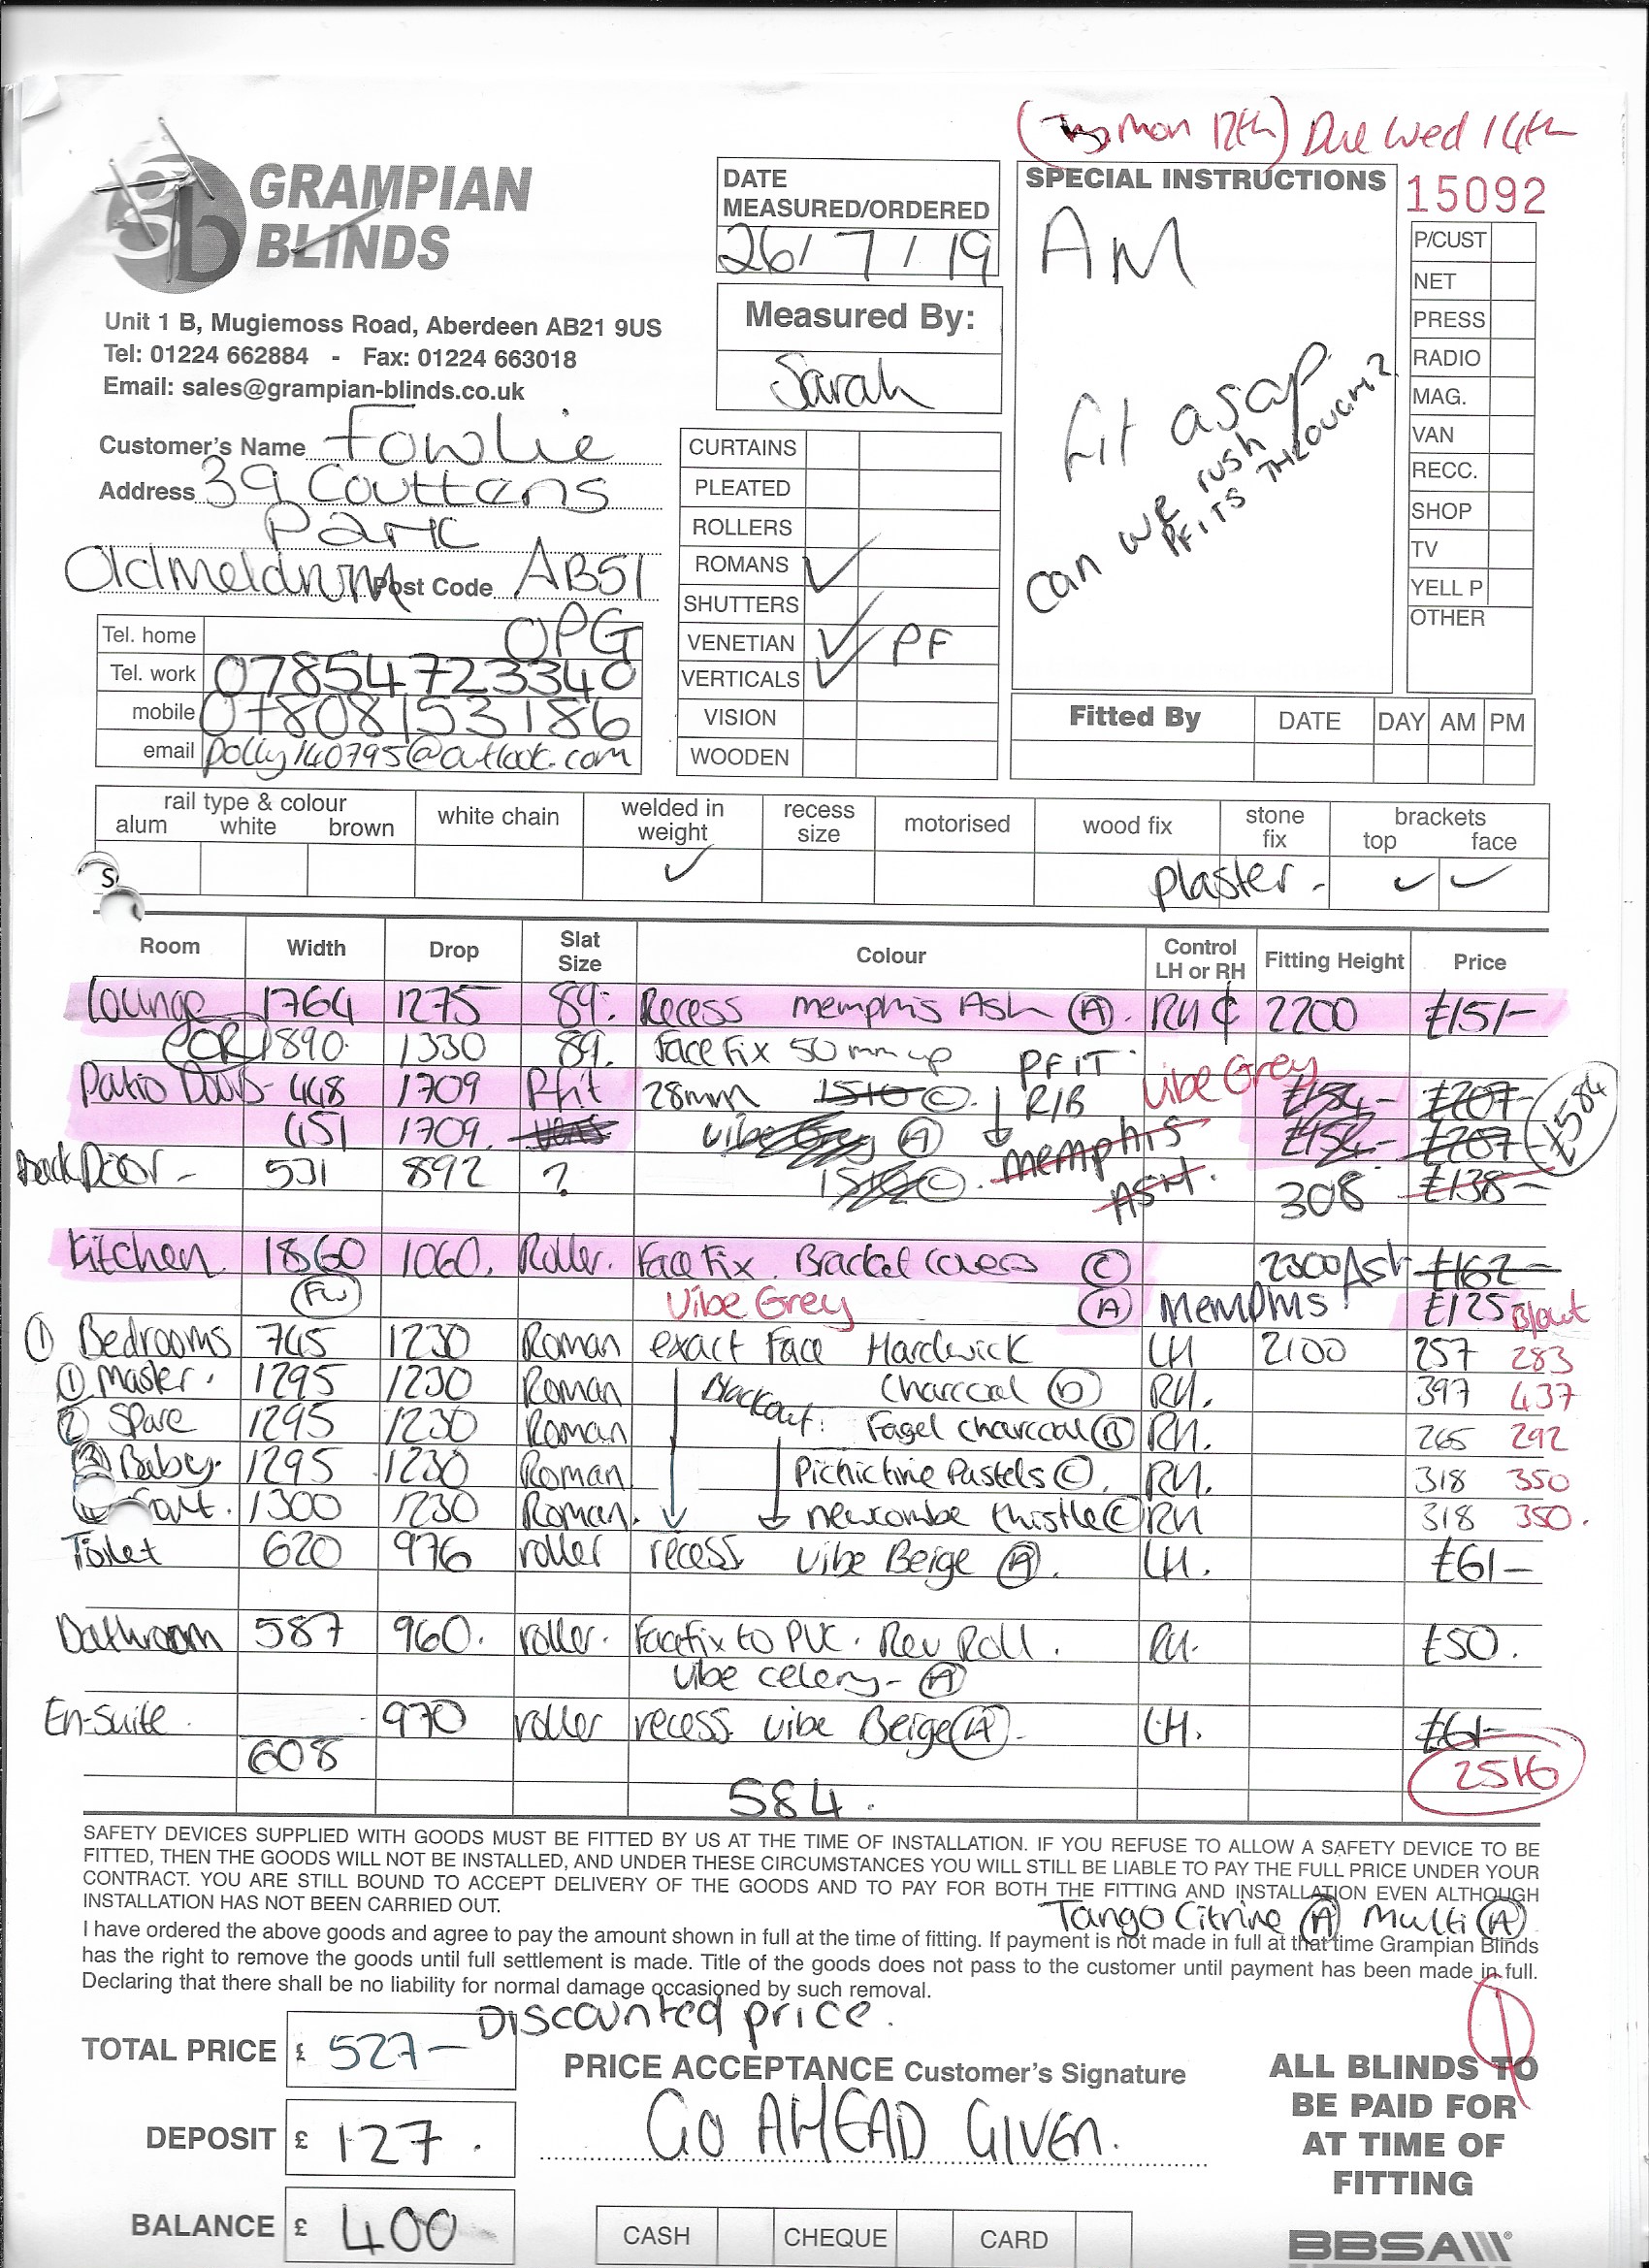 (Mon 12th) Due Wed 14th
GRAMPIAN
BLINDS
Unit 1 B, Mugiemoss Road, Aberdeen AB21 9US
Tel: 01224 662884 - Fax: 01224 663018
Email: sales@grampian-blinds.co.uk
DATE
MEASURED/ORDERED
26/7/19
Measured By:
Sarah
SPECIAL INSTRUCTIONS
AM
fit asap
can we rush
PFITS THROUGH?
15092
P/CUST
NET
PRESS
RADIO
MAG.
VAN
RECC.
SHOP
TV
YELL P
OTHER
Customer's Name Fowlie
Address 39 Couttens
Park
Oldmeldrum Post Code AB51
OPG
Tel. home
Tel. work 07854723340
mobile 07808153186
email polly140795@outlook.com
CURTAINS
PLEATED
ROLLERS
ROMANS ✓
SHUTTERS
VENETIAN ✓ PF
VERTICALS ✓
VISION
WOODEN
Fitted By DATE DAY AM PM
rail type & colour
alum white brown
white chain
welded in
weight
recess
size
motorised
wood fix
stone
fix
brackets
top face
✓ plaster - ✓ ✓
Room Width Drop Slat Size Colour Control LH or RH Fitting Height Price
Lounge 1764 1275 89. Recess Memphis Ash (A). RH ¢ 2200 £151-
(OR) 1890 1330 89. Face Fix 50mm up
Patio Doors 448 1709 Pfit 28mm 1510 (C). PFIT R/B Vibe Grey £154- £207-
451 1709. Vens Vibe Grey (A) Memphis £154- £207- £584
Back Door - 531 892 ? 1510 (C). Ash. 308 £138-
Kitchen 1860 1060. Roller. Face Fix. Bracket Covers (C) 2300 Ash £162-
(FW) Vibe Grey (A) Memphis £125 B/out
(1) Bedrooms 745 1230 Roman exact Face Hardwick LH 2100 257 283
(1) Master. 1295 1230 Roman Blackout: Charcoal (D) RH. 397 437
(2) Spare 1295 1230 Roman Fagel Charcoal (B) RH. 265 292
(3) Baby. 1295 1230 Roman Pichictine Pastels (C). RH. 318 350
1300 1230 Roman. newcombe thistle (C) RH 318 350.
Toilet 620 976 roller recess Vibe Beige (A). LH. £61-
Bathroom 587 960. roller. Facefix to PVC. Rev Roll. RH. £50.
Vibe Celery - (A)
En-Suite 970 roller recess Vibe Beige (A) - LH. £61-
608 2516
584.
SAFETY DEVICES SUPPLIED WITH GOODS MUST BE FITTED BY US AT THE TIME OF INSTALLATION. IF YOU REFUSE TO ALLOW A SAFETY DEVICE TO BE
FITTED, THEN THE GOODS WILL NOT BE INSTALLED, AND UNDER THESE CIRCUMSTANCES YOU WILL STILL BE LIABLE TO PAY THE FULL PRICE UNDER YOUR
CONTRACT. YOU ARE STILL BOUND TO ACCEPT DELIVERY OF THE GOODS AND TO PAY FOR BOTH THE FITTING AND INSTALLATION EVEN ALTHOUGH
INSTALLATION HAS NOT BEEN CARRIED OUT.
Tango Citrine (A) Multi (A)
I have ordered the above goods and agree to pay the amount shown in full at the time of fitting. If payment is not made in full at that time Grampian Blinds
has the right to remove the goods until full settlement is made. Title of the goods does not pass to the customer until payment has been made in full.
Declaring that there shall be no liability for normal damage occasioned by such removal.
Discounted price.
TOTAL PRICE £ 527-
PRICE ACCEPTANCE Customer's Signature
GO AHEAD GIVEN.
DEPOSIT £ 127.
BALANCE £ 400
CASH CHEQUE CARD
ALL BLINDS TO
BE PAID FOR
AT TIME OF
FITTING
BBSA